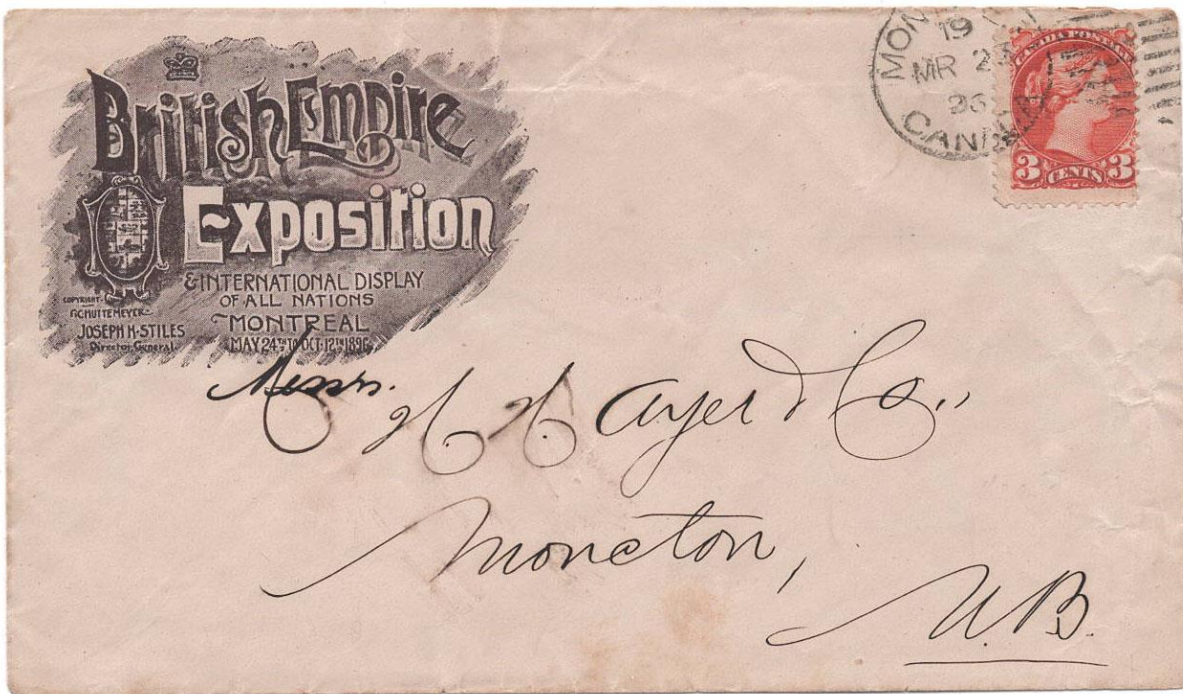 British Empire
Exposition
& INTERNATIONAL DISPLAY
OF ALL NATIONS
MONTREAL
MAY 24TH TO OCT. 12TH 1896
COPYRIGHT
F.C. HUTTEMEYER
JOSEPH H. STILES
Director General
19
MR 23
96
CANADA
CANADA POSTAGE
3 CENTS 3
Messrs. H. H. Ayer & Co.,
Moncton,
N.B.